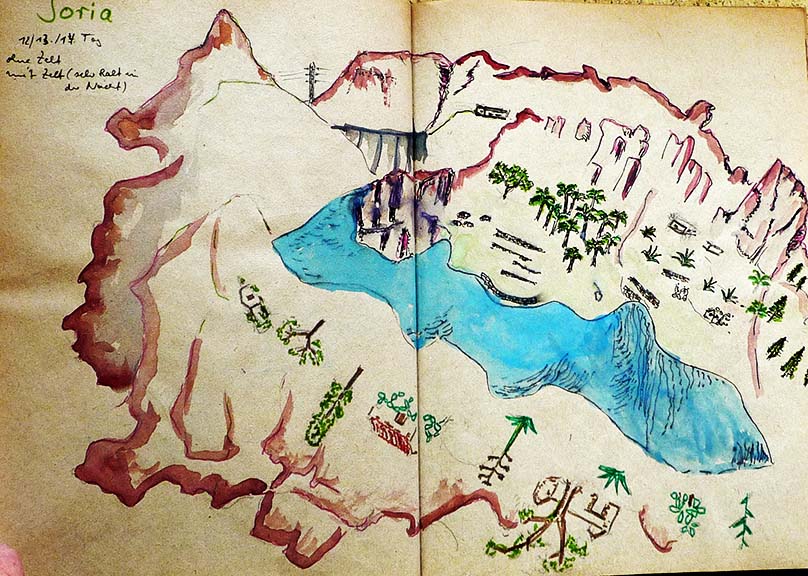 Soria
12/13./14. Tag
ohne Zelt
mit Zelt (sehr kalt in
der Nacht)